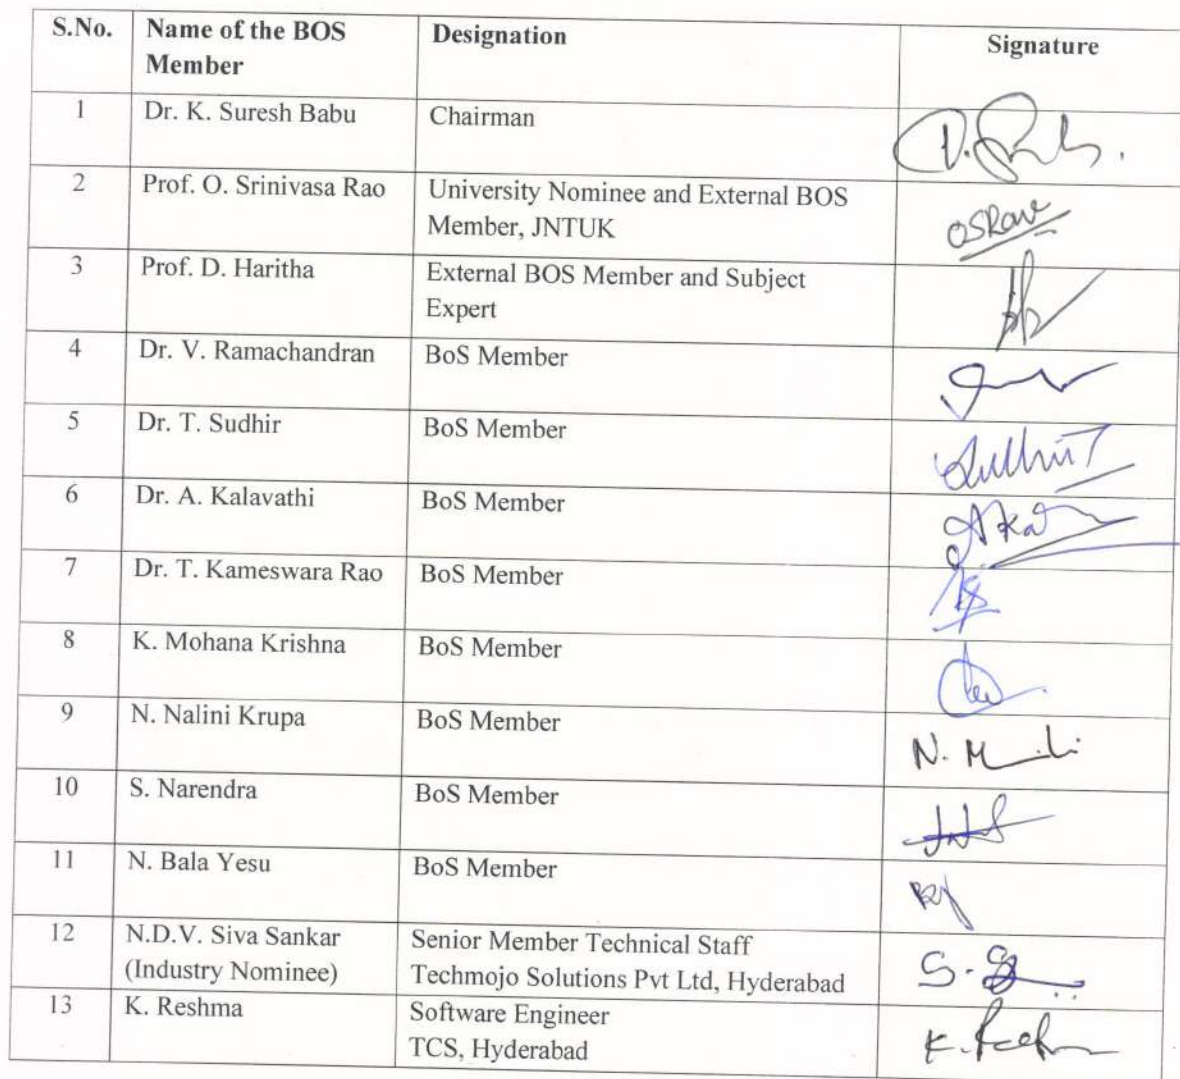 S.No. Name of the BOS Designation Signature
Member
1 Dr. K. Suresh Babu Chairman
2 Prof. O. Srinivasa Rao University Nominee and External BOS
Member, JNTUK OSRaw
3 Prof. D. Haritha External BOS Member and Subject
Expert
4 Dr. V. Ramachandran BoS Member
5 Dr. T. Sudhir BoS Member
6 Dr. A. Kalavathi BoS Member
7 Dr. T. Kameswara Rao BoS Member
8 K. Mohana Krishna BoS Member
9 N. Nalini Krupa BoS Member
10 S. Narendra BoS Member
11 N. Bala Yesu BoS Member
12 N.D.V. Siva Sankar Senior Member Technical Staff
(Industry Nominee) Techmojo Solutions Pvt Ltd, Hyderabad
13 K. Reshma Software Engineer
TCS, Hyderabad